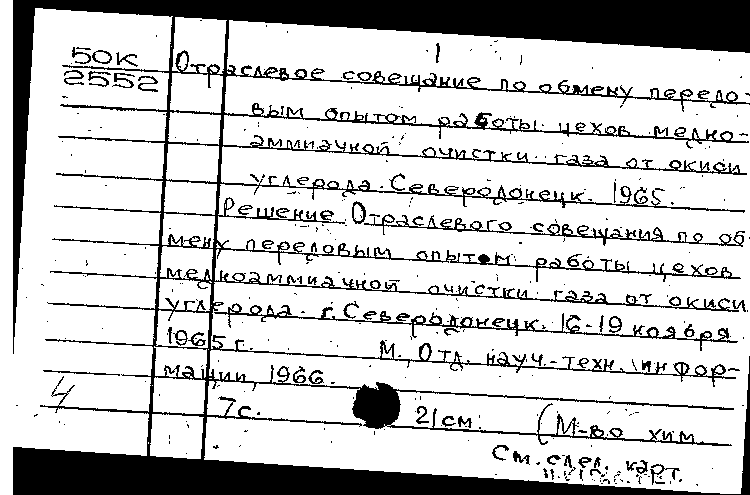 1
50К
2552
Отраслевое совещание по обмену передо-
вым опытом работы цехов медно-
аммиачной очистки газа от окиси
углерода. Северодонецк. 1965.
Решение Отраслевого совещания по об-
мену передовым опытом работы цехов
медноаммиачной очистки газа от окиси
углерода. г. Северодонецк. 16-19 ноября
1965 г. М., Отд. науч.-техн. инфор-
мации, 1966.
4
7с. 21см. (М-во хим.
См. след. карт.